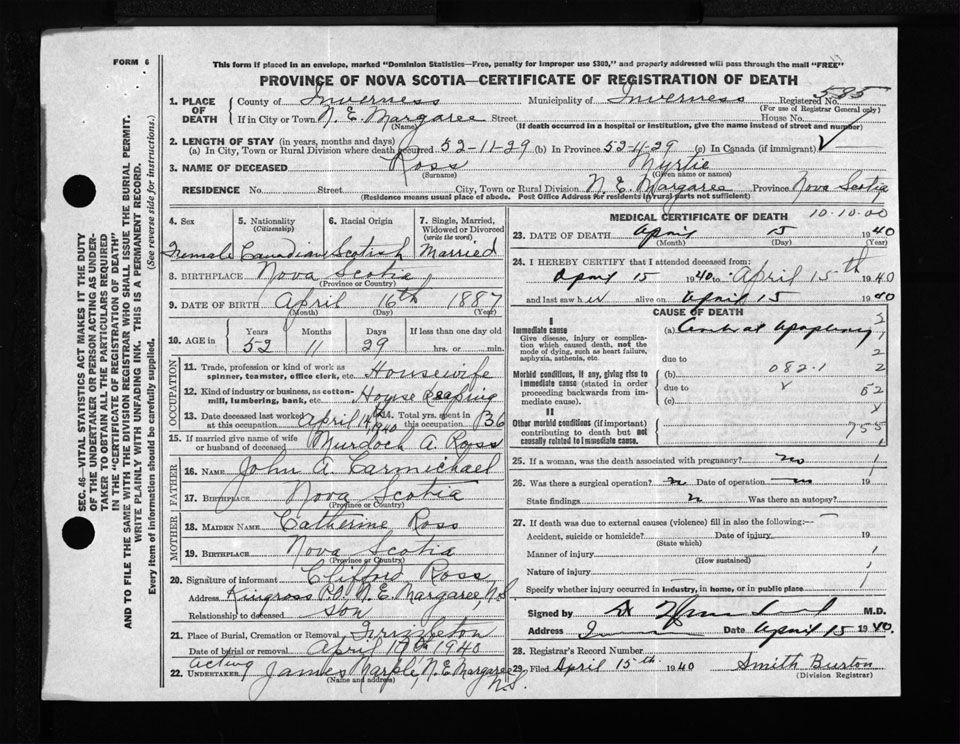 FORM 6
This form if placed in an envelope, marked "Dominion Statistics—Free, penalty for improper use $300," and properly addressed will pass through the mail "FREE"
PROVINCE OF NOVA SCOTIA—CERTIFICATE OF REGISTRATION OF DEATH
1. PLACE OF DEATH County of Inverness Municipality of Inverness Registered No. 535
(For use of Registrar General only)
If in City or Town N. E. Margaree Street House No.
(Name) (If death occurred in a hospital or institution, give the name instead of street and number)
2. LENGTH OF STAY (in years, months and days)
(a) In City, Town or Rural Division where death occurred 52-11-29 (b) In Province 52-11-29 (c) In Canada (if immigrant)
3. NAME OF DECEASED Ross Myrtie
(Surname) (Given name or names)
RESIDENCE No. Street City, Town or Rural Division N. E. Margaree Province Nova Scotia
(Residence means usual place of abode. Post Office Address for residents in rural parts not sufficient)
4. Sex 5. Nationality (Citizenship) 6. Racial Origin 7. Single, Married, Widowed or Divorced (write the word)
Female Canadian Scotish Married
8. BIRTHPLACE Nova Scotia
(Province or Country)
9. DATE OF BIRTH April 16th 1887
(Month) (Day) (Year)
10. AGE in Years Months Days If less than one day old
52 11 29 hrs. or min.
OCCUPATION
11. Trade, profession or kind of work as spinner, teamster, office clerk, etc. Housewife
12. Kind of industry or business, as cotton-mill, lumbering, bank, etc. House Keeping
13. Date deceased last worked at this occupation April 14th 1940 14. Total yrs. spent in this occupation 36
15. If married give name of wife or husband of deceased Murdoch A Ross
FATHER
16. NAME John A. Carmichael
17. BIRTHPLACE Nova Scotia
(Province or Country)
MOTHER
18. MAIDEN NAME Catherine Ross
19. BIRTHPLACE Nova Scotia
(Province or Country)
20. Signature of informant Clifford Ross
Address Kingross P.O. N. E. Margaree, N.S.
Relationship to deceased son
21. Place of Burial, Cremation or Removal
Date of burial or removal April 17th 1940
acting
22. UNDERTAKER James Marple, N. E. Margaree N.S.
(Name and address)
MEDICAL CERTIFICATE OF DEATH 10-10-00
23. DATE OF DEATH April 15 1940
(Month) (Day) (Year)
24. I HEREBY CERTIFY that I attended deceased from:
April 15 1940 to April 15th 1940
and last saw her alive on April 15 1940
CAUSE OF DEATH
I
Immediate cause (a)
Give disease, injury or complication which caused death, not the mode of dying, such as heart failure, asphyxia, asthenia, etc.
due to
Morbid conditions, if any, giving rise to immediate cause (stated in order proceeding backwards from immediate cause). (b) 082.1
due to
(c)
II
Other morbid conditions (if important) contributing to death but not causally related to immediate cause.
52
755
25. If a woman, was the death associated with pregnancy? no
26. Was there a surgical operation? n Date of operation 19
State findings n Was there an autopsy?
27. If death was due to external causes (violence) fill in also the following:—
Accident, suicide or homicide? Date of injury 19
(State which)
Manner of injury
(How sustained)
Nature of injury
Specify whether injury occurred in industry, in home, or in public place
Signed by Dr M.D.
Address Date April 15 1940.
28. Registrar's Record Number
29. Filed April 15th 1940 Smith Burton
(Division Registrar)
SEC. 46—VITAL STATISTICS ACT MAKES IT THE DUTY
OF THE UNDERTAKER OR PERSON ACTING AS UNDERTAKER TO OBTAIN ALL THE PARTICULARS REQUIRED
IN THE "CERTIFICATE OF REGISTRATION OF DEATH"
AND TO FILE THE SAME WITH THE DIVISION REGISTRAR WHO SHALL ISSUE THE BURIAL PERMIT.
WRITE PLAINLY WITH UNFADING INK. THIS IS A PERMANENT RECORD.
Every item of information should be carefully supplied. (See reverse side for instructions.)